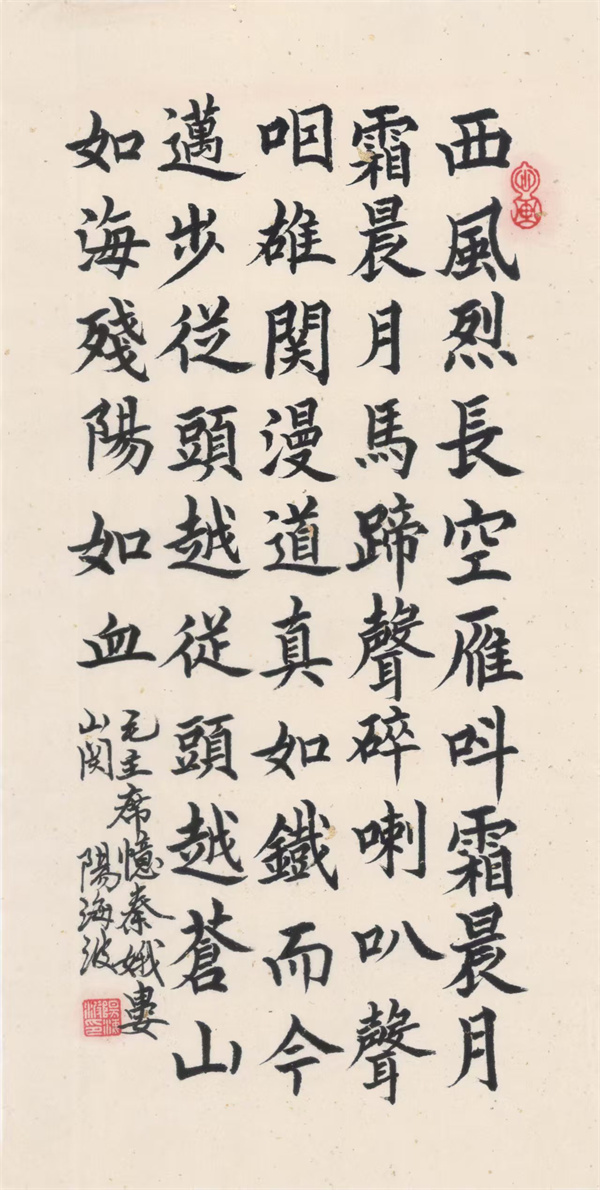 西風烈長空雁叫霜晨月
霜晨月馬蹄聲碎喇叭聲
咽雄関漫道真如鐵而今
邁步従頭越従頭越蒼山
如海殘陽如血
毛主席憶秦娥婁
山関 陽海波